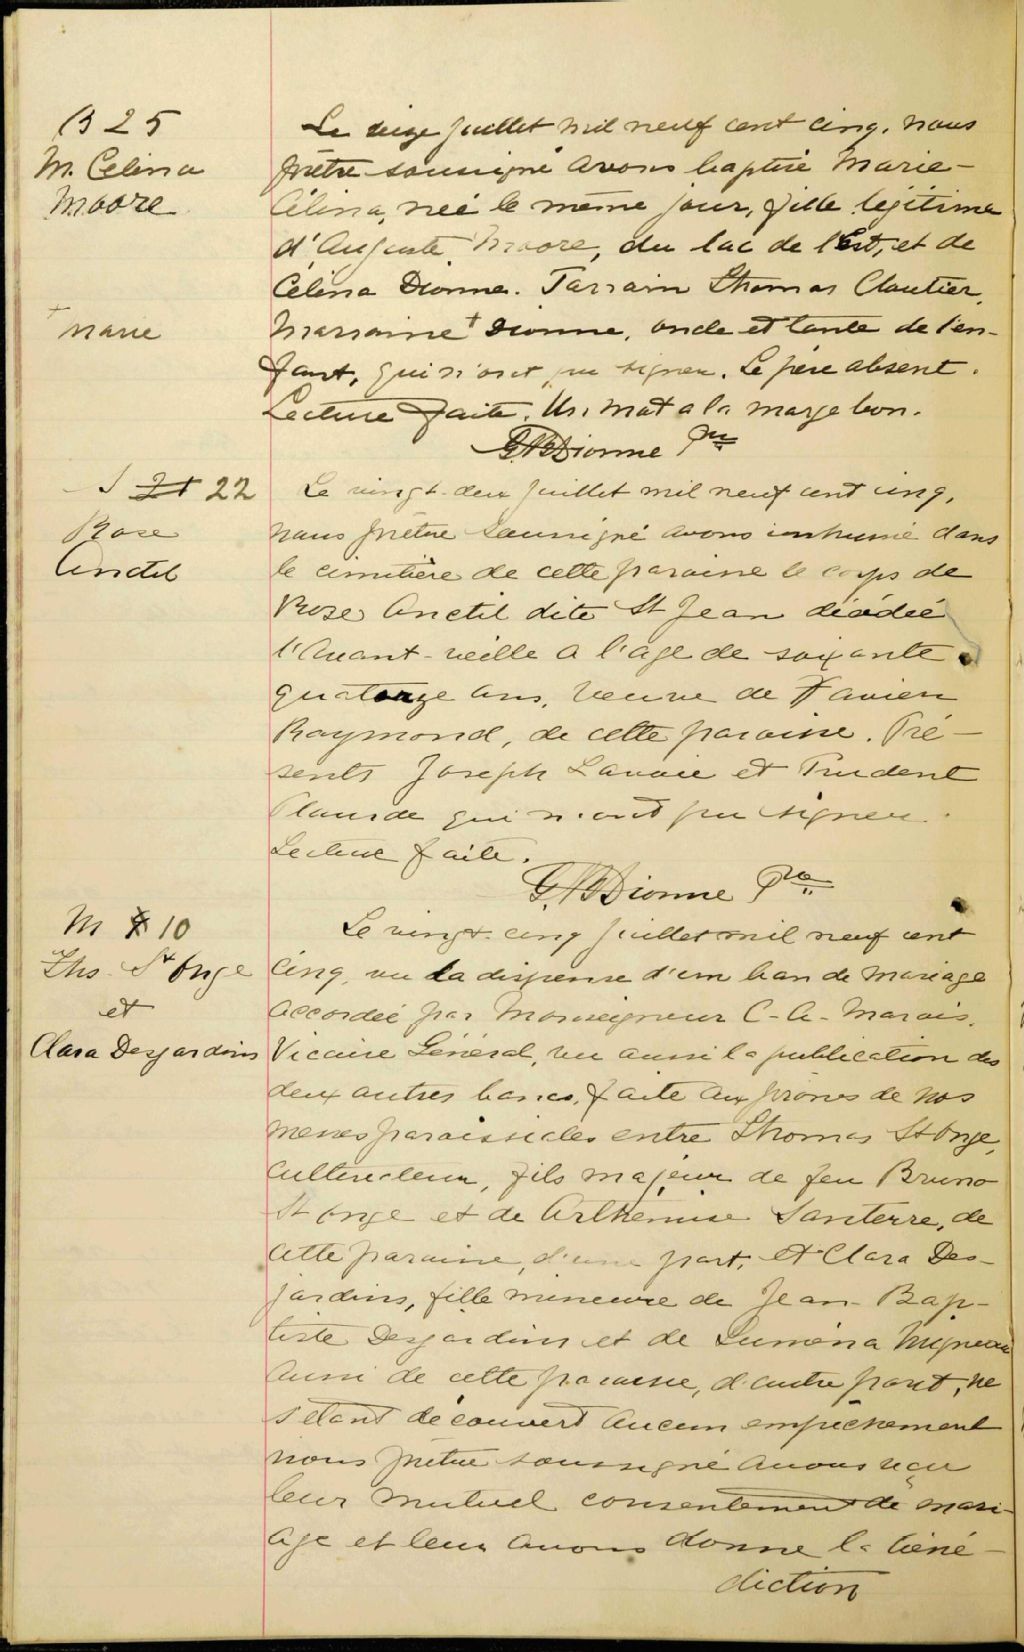 B 25
M. Celina
Moore
Le seize juillet mil neuf cent cinq, nous
prêtre soussigné avons baptisé Marie-
Célina, née le même jour, fille légitime
d'Auguste Moore, du lac de l'Est, et de
Célina Dionne. Parrain Thomas Cloutier,
+ Marie
Marraine + Dionne, oncle et tante de l'en-
fant, qui n'ont pu signer. Le père absent.
Lecture faite. Un mot à la marge bon.
Dionne Ptre
S 21 22
Rose
Anctil
Le vingt-deux juillet mil neuf cent cinq,
nous prêtre soussigné avons inhumé dans
le cimetière de cette paroisse le corps de
Rose Anctil dite St Jean décédée
l'avant-veille a l'age de soixante
quatorze ans, veuve de Xavier
Raymond, de cette paroisse. Pré-
sents Joseph Lavoie et Prudent
Plourde qui n'ont pu signer.
Lecture faite.
Dionne Ptre
M 10
Ths. St Onge
et
Clara Desjardins
Le vingt-cinq juillet mil neuf cent
cinq, vu la dispense d'un ban de mariage
accordée par Monseigneur C-A-Marois,
Vicaire Général, vu aussi la publication des
deux autres bancs, faite aux prônes de nos
messes paroissiales entre Thomas St Onge,
cultivateur, fils majeur de feu Bruno
St Onge et de Arthémise Santerre, de
cette paroisse, d'une part, et Clara Des-
jardins, fille mineure de Jean-Bap-
tiste Desjardins et de Luména Migneau
aussi de cette paroisse, d'autre part, ne
s'étant découvert aucun empêchement
nous prêtre soussigné avons reçu
leur mutuel consentement de mari-
age et leur avons donné la béné-
diction